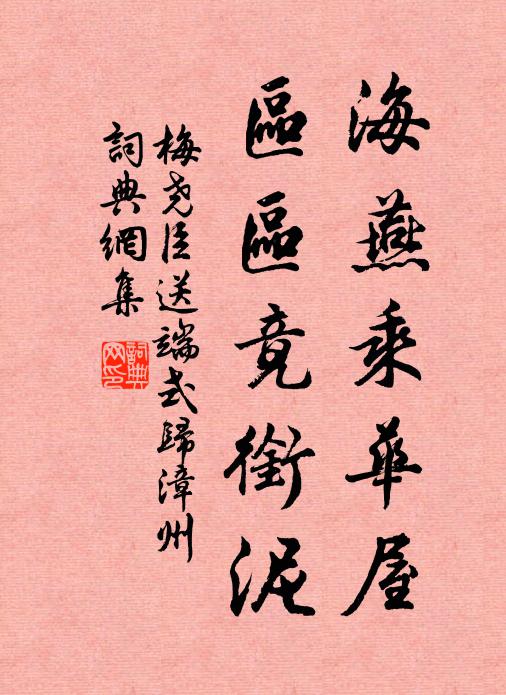 海燕乘華屋
區區竟銜泥
梅堯臣送端式歸漳州
詞典網集
詞典网印